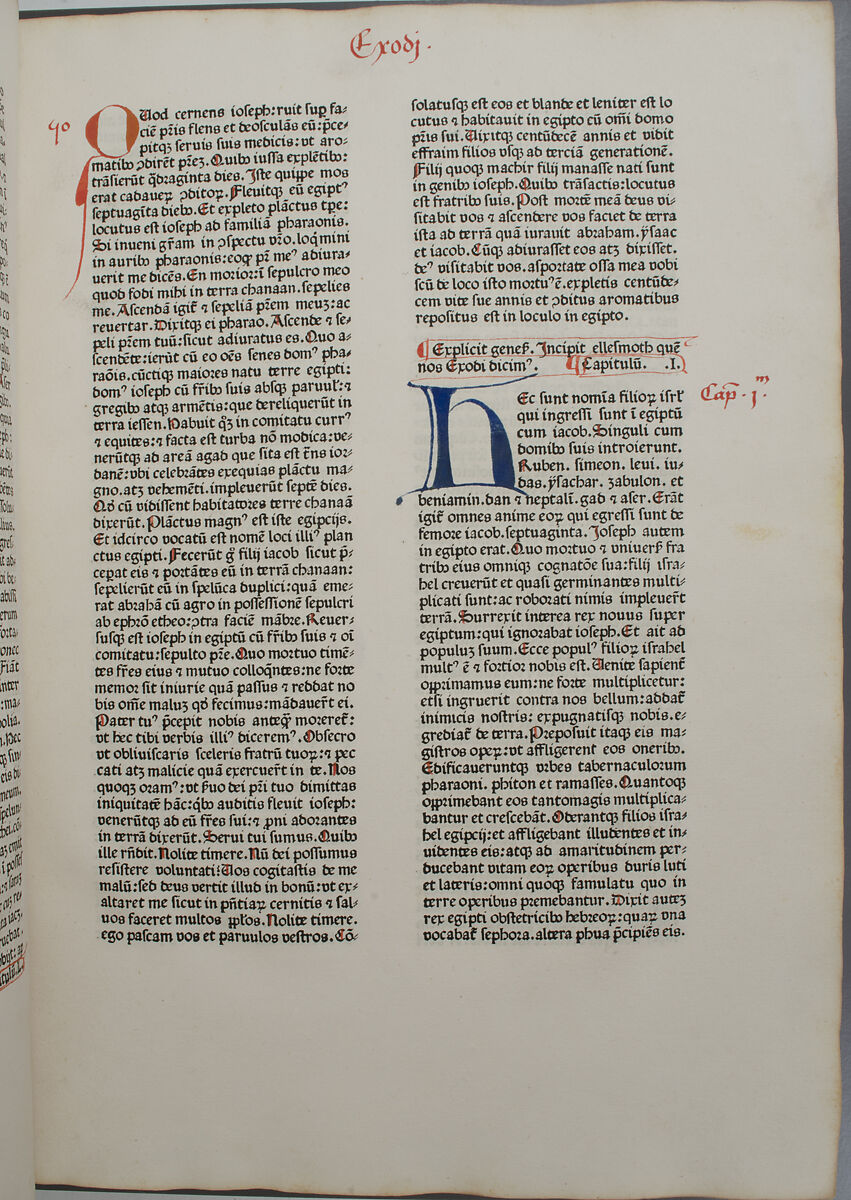 Exodj.
50
QUod cernens ioseph:ruit suꝑ fa⸗
ciē pr̄is flens et deosculās eū:p̄ce⸗
pitqꝫ seruis suis medicis:vt aro⸗
matibꝰ ꝯdirēt pr̄eꝫ.Quibꝰ iussa explētibꝰ:
trāsierūt q̄draginta dies.Iste quippe mos
erat cadaueꝝ ꝯditoꝝ.Fleuitqꝫ eū egiptꝰ
septuagīta diebꝰ.Et expleto plāctus tꝑe:
locutus est ioseph ad familiā pharaonis.
Si inueni gr̄am in ꝯspectu vr̄o.loq̄mini
in auribꝰ pharaonis:eoqꝫ pr̄ meꝰ adiura⸗
uerit me dicēs.En morior:ī sepulcro meo
quod fodi mihi in terra chanaan.sepelies
me.Ascendā igit̄ ⁊ sepeliā pr̄em meuꝫ:ac
reuertar.Dixitqꝫ ei pharao.Ascende ⁊ se⸗
peli pr̄em tuū:sicut adiuratus es.Quo a⸗
scendēte:ierūt cū eo oēs senes domꝰ pha⸗
raōis.cūctiqꝫ maiores natu terre egipti:
domꝰ ioseph cū fr̄ibꝰ suis absqꝫ paruul̕:⁊
gregibꝰ atqꝫ armētis:que dereliquerūt in
terra iessen.Habuit qͦꝫ in comitatu currꝰ
⁊ equites:⁊ facta est turba nō modica:ve⸗
nerūtqꝫ ad areā agad que sita est tr̄ns ior⸗
danē:vbi celebrātes exequias plāctu ma⸗
gno.atꝫ vehemēti.impleuerūt septē dies.
Qd̕ cū vidissent habitatores terre chanaā
dixerūt.Plāctus magnꝰ est iste egipcijs.
Et idcirco vocatū est nomē loci illiꝰ plan
ctus egipti.Fecerūt g̊ filij iacob sicut p̄⸗
ceꝑat eis ⁊ portātes eū in terrā chanaan:
sepelierūt eū in spelūca duplici:quā eme⸗
rat abrahā cū agro in possessionē sepulcri
ab ephrō etheo:ꝯtra faciē mābre.Reuer⸗
susqꝫ est ioseph in egiptū cū fr̄ibꝰ suis ⁊ oī
comitatu:sepulto pr̄e.Quo mortuo timē⸗
tes fr̄es eius ⁊ mutuo colloq̄ntes:ne forte
memor sit iniurie quā passus ⁊ reddat no
bis om̄e maluꝫ qd̕ fecimus:mādauer̄t ei.
Pater tuꝰ p̄cepit nobis anteqꝫ moreret̄:
vt hec tibi verbis illiꝰ diceremꝰ.Obsecro
vt obliuiscaris sceleris fratrū tuoꝝ:⁊ pec
cati atꝫ malicie quā exercuer̄t in te.Nos
quoqꝫ oramꝰ:vt ẜuo dei pr̄i tuo dimittas
iniquitatē hāc:q̄bꝰ auditis fleuit ioseph:
venerūtqꝫ ad eū fr̄es sui:⁊ ꝓni adorantes
in terrā dixerūt.Serui tui sumus.Quibꝰ
ille rn̄dit.Nolite timere.Nū dei possumus
resistere voluntati?Uos cogitastis de me
malū:sed deus vertit illud in bonū:vt ex⸗
altaret me sicut in pn̄tiaꝝ cernitis ⁊ sal⸗
uos faceret multos ꝓplos.Nolite timere.
ego pascam vos et paruulos vestros.Cō⸗
solatusqꝫ est eos et blande et leniter est lo
cutus ⁊ habitauit in egipto cū om̄i domo
pr̄is sui.Uixitqꝫ centūdecē annis et vidit
effraim filios vsqꝫ ad terciā generationē.
Filij quoqꝫ machir filij manasse nati sunt
in genibꝰ ioseph.Quibꝰ trāsactis:locutus
est fratribꝰ suis.Post mortē meā deus vi⸗
sitabit vos ⁊ ascendere vos faciet de terra
ista ad terrā quā iurauit abraham.ysaac
et iacob.Cūqꝫ adiurasset eos atꝫ dixisset.
deꝰ visitabit vos.asportate ossa mea vobi
scū de loco isto mortuꝰ ē.expletis centūde⸗
cem vite sue annis et ꝯditus aromatibus
repositus est in loculo in egipto.
Explicit genes̕. Incipit ellesmoth quē
nos Exodi dicimꝰ. Capitulū. .I.
Cap̄. jm.
HEc sunt nomīa filioꝝ isrl̕
qui ingressi sunt ī egiptū
cum iacob.Singuli cum
domibꝰ suis introierunt.
Ruben. simeon. leui. iu⸗
das. ysachar. zabulon. et
beniamin.dan ⁊ neptali. gad ⁊ aser. Erāt
igit̄ omnes anime eoꝝ qui egressi sunt de
femore iacob.septuaginta. Ioseph autem
in egipto erat.Quo mortuo ⁊ vniuers̕ fra
tribꝰ eius omniqꝫ cognatōe sua:filij isra⸗
hel creuerūt et quasi germinantes multi⸗
plicati sunt:ac roborati nimis impleuer̄t
terrā.Surrexit interea rex nouus super
egiptum:qui ignorabat ioseph.Et ait ad
populuꝫ suum.Ecce populꝰ filioꝝ israhel
multꝰ ē ⁊ fortior nobis est.Uenite sapient̄
opprimamus eum:ne forte multiplicetur:
etsi ingruerit contra nos bellum:addat̄
inimicis nostris: expugnatisqꝫ nobis.e⸗
grediat̄ de terra.Preposuit itaqꝫ eis ma⸗
gistros opeꝝ:vt affligerent eos oneribꝰ.
Edificaueruntqꝫ vrbes tabernaculorum
pharaoni. phiton et ramasses.Quantoqꝫ
opprimebant eos tantomagis multiplica⸗
bantur et crescebāt.Oderantqꝫ filios isra⸗
hel egipcij:et affligebant illudentes et in⸗
uidentes eis:atqꝫ ad amaritudinem per⸗
ducebant vitam eoꝝ operibus duris luti
et lateris:omni quoqꝫ famulatu quo in
terre operibus premebantur.Dixit auteꝫ
rex egipti obstetricibꝰ hebreoꝝ:quaꝝ vna
vocabat̄ sephora.altera phua p̄cipiēs eis.